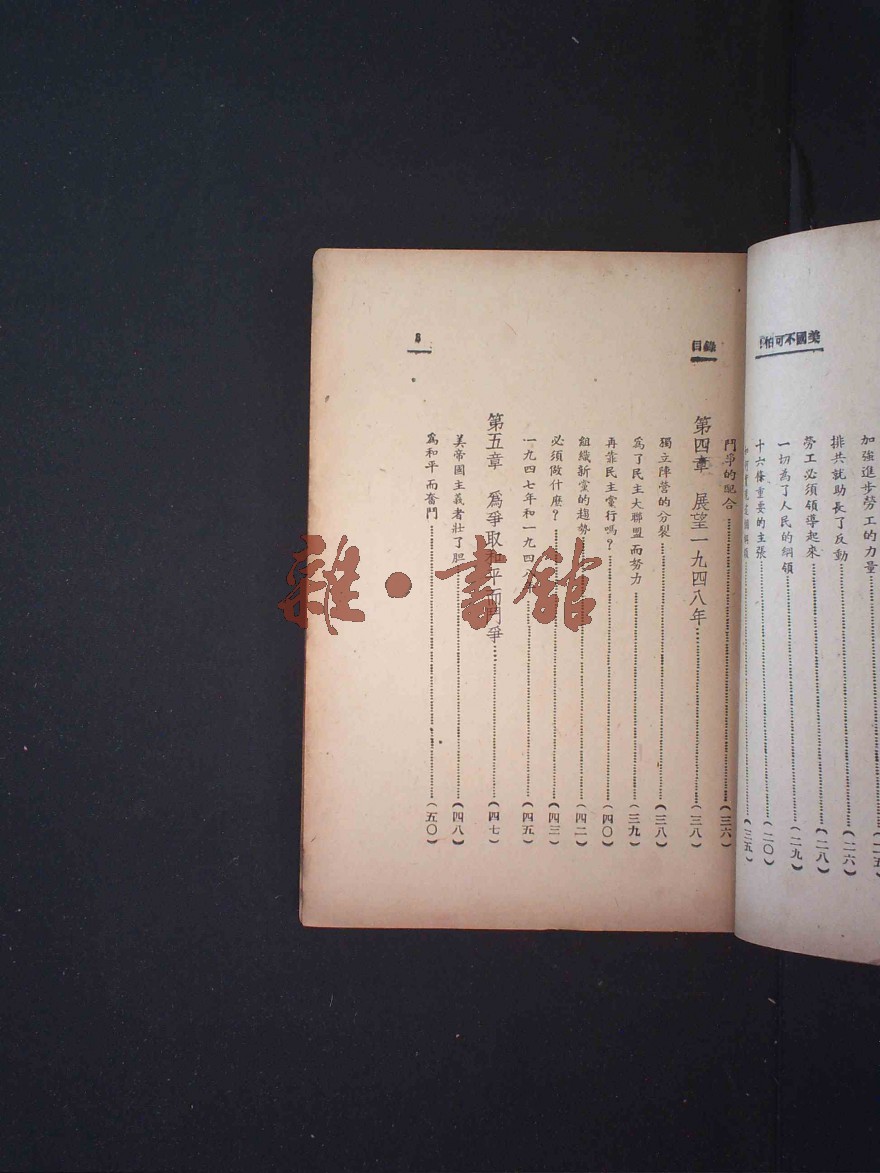 美國不可怕！
加強進步勞工的力量……(二五)
排共就助長了反動……(二六)
勞工必須領導起來……(二八)
一切為了人民的綱領……(二九)
十六條重要的主張……(二〇)
……(三五)
目錄
鬥爭的配合……(三六)
第四章 展望一九四八年……(三八)
獨立陣營的分裂……(三八)
爲了民主大聯盟而努力……(三九)
再靠民主黨行嗎？……(四〇)
組織新黨的趨勢……(四二)
必須做什麽？……(四三)
一九四七年和一九四八年……(四五)
第五章 爲爭取和平而鬥爭……(四七)
美帝國主義者壯了胆……(四八)
爲和平而奮鬥……(五〇)
雜·書館